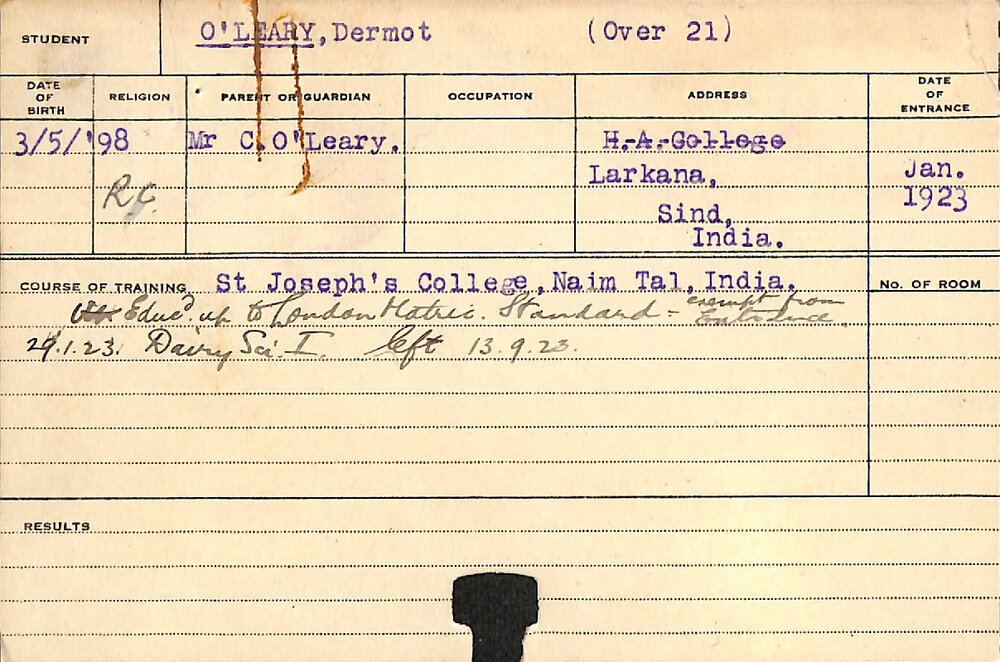 STUDENT O'LEARY, Dermot (Over 21)
DATE OF BIRTH RELIGION PARENT OR GUARDIAN OCCUPATION ADDRESS DATE OF ENTRANCE
3/5/'98 Mr C. O'Leary. H.A. College
R.C. Larkana, Jan.
Sind, 1923
India.
COURSE OF TRAINING St Joseph's College, Naim Tal, India. No. OF ROOM
Educd. up to London Matric. Standard - exempt from Entrance.
29.1.23. Dairy Sci. I. left 13.9.23.
RESULTS